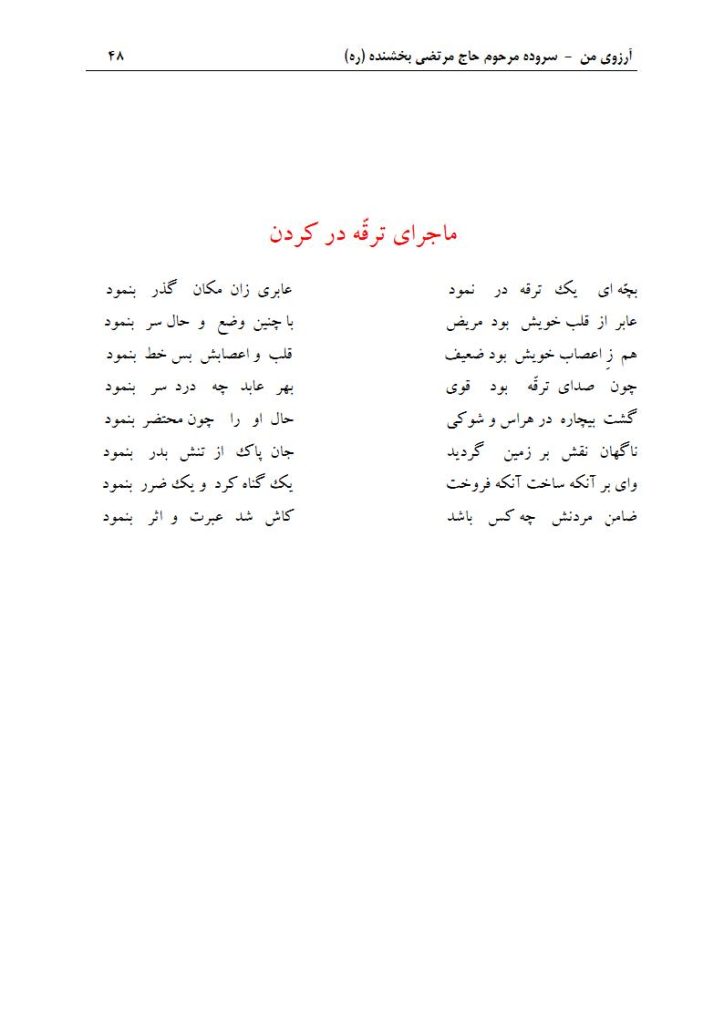 آرزوی من - سروده مرحوم حاج مرتضی بخشنده (ره) ۴۸
ماجرای ترقّه در کردن
بچّه ای یک ترقه در نمود عابری زان مکان گذر بنمود
عابر از قلب خویش بود مریض با چنین وضع و حال سر بنمود
هم زِ اعصاب خویش بود ضعیف قلب و اعصابش بس خط بنمود
چون صدای ترقّه بود قوی بهر عابد چه درد سر بنمود
گشت بیچاره در هراس و شوکی حال او را چون محتضر بنمود
ناگهان نقش بر زمین گردید جان پاک از تنش بدر بنمود
وای بر آنکه ساخت آنکه فروخت یک گناه کرد و یک ضرر بنمود
ضامن مردنش چه کس باشد کاش شد عبرت و اثر بنمود